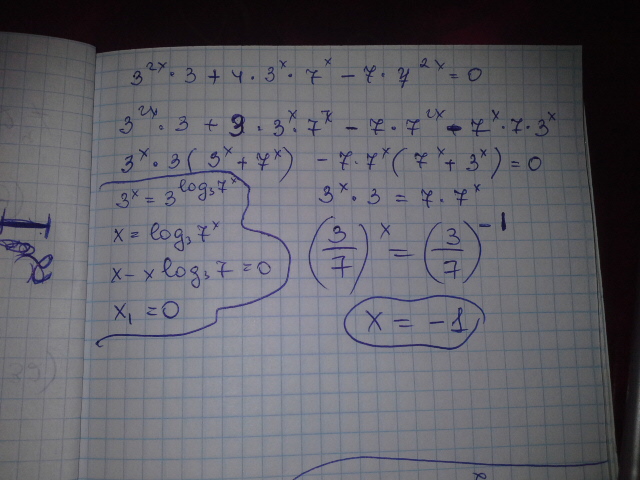 3^{2x} · 3 + 4 · 3^x · 7^x − 7 · 7^{2x} = 0
3^{2x} · 3 + 3 · 3^x · 7^x − 7 · 7^{2x} - 7^x · 7 · 3^x
3^x · 3 ( 3^x + 7^x ) − 7 · 7^x ( 7^x + 3^x ) = 0
3^x = 3^{log_3 7^x}
x = log_3 7^x
x − x log_3 7 = 0
x_1 = 0
3^x · 3 = 7 · 7^x
(3/7)^x = (3/7)^{-1}
x = -1